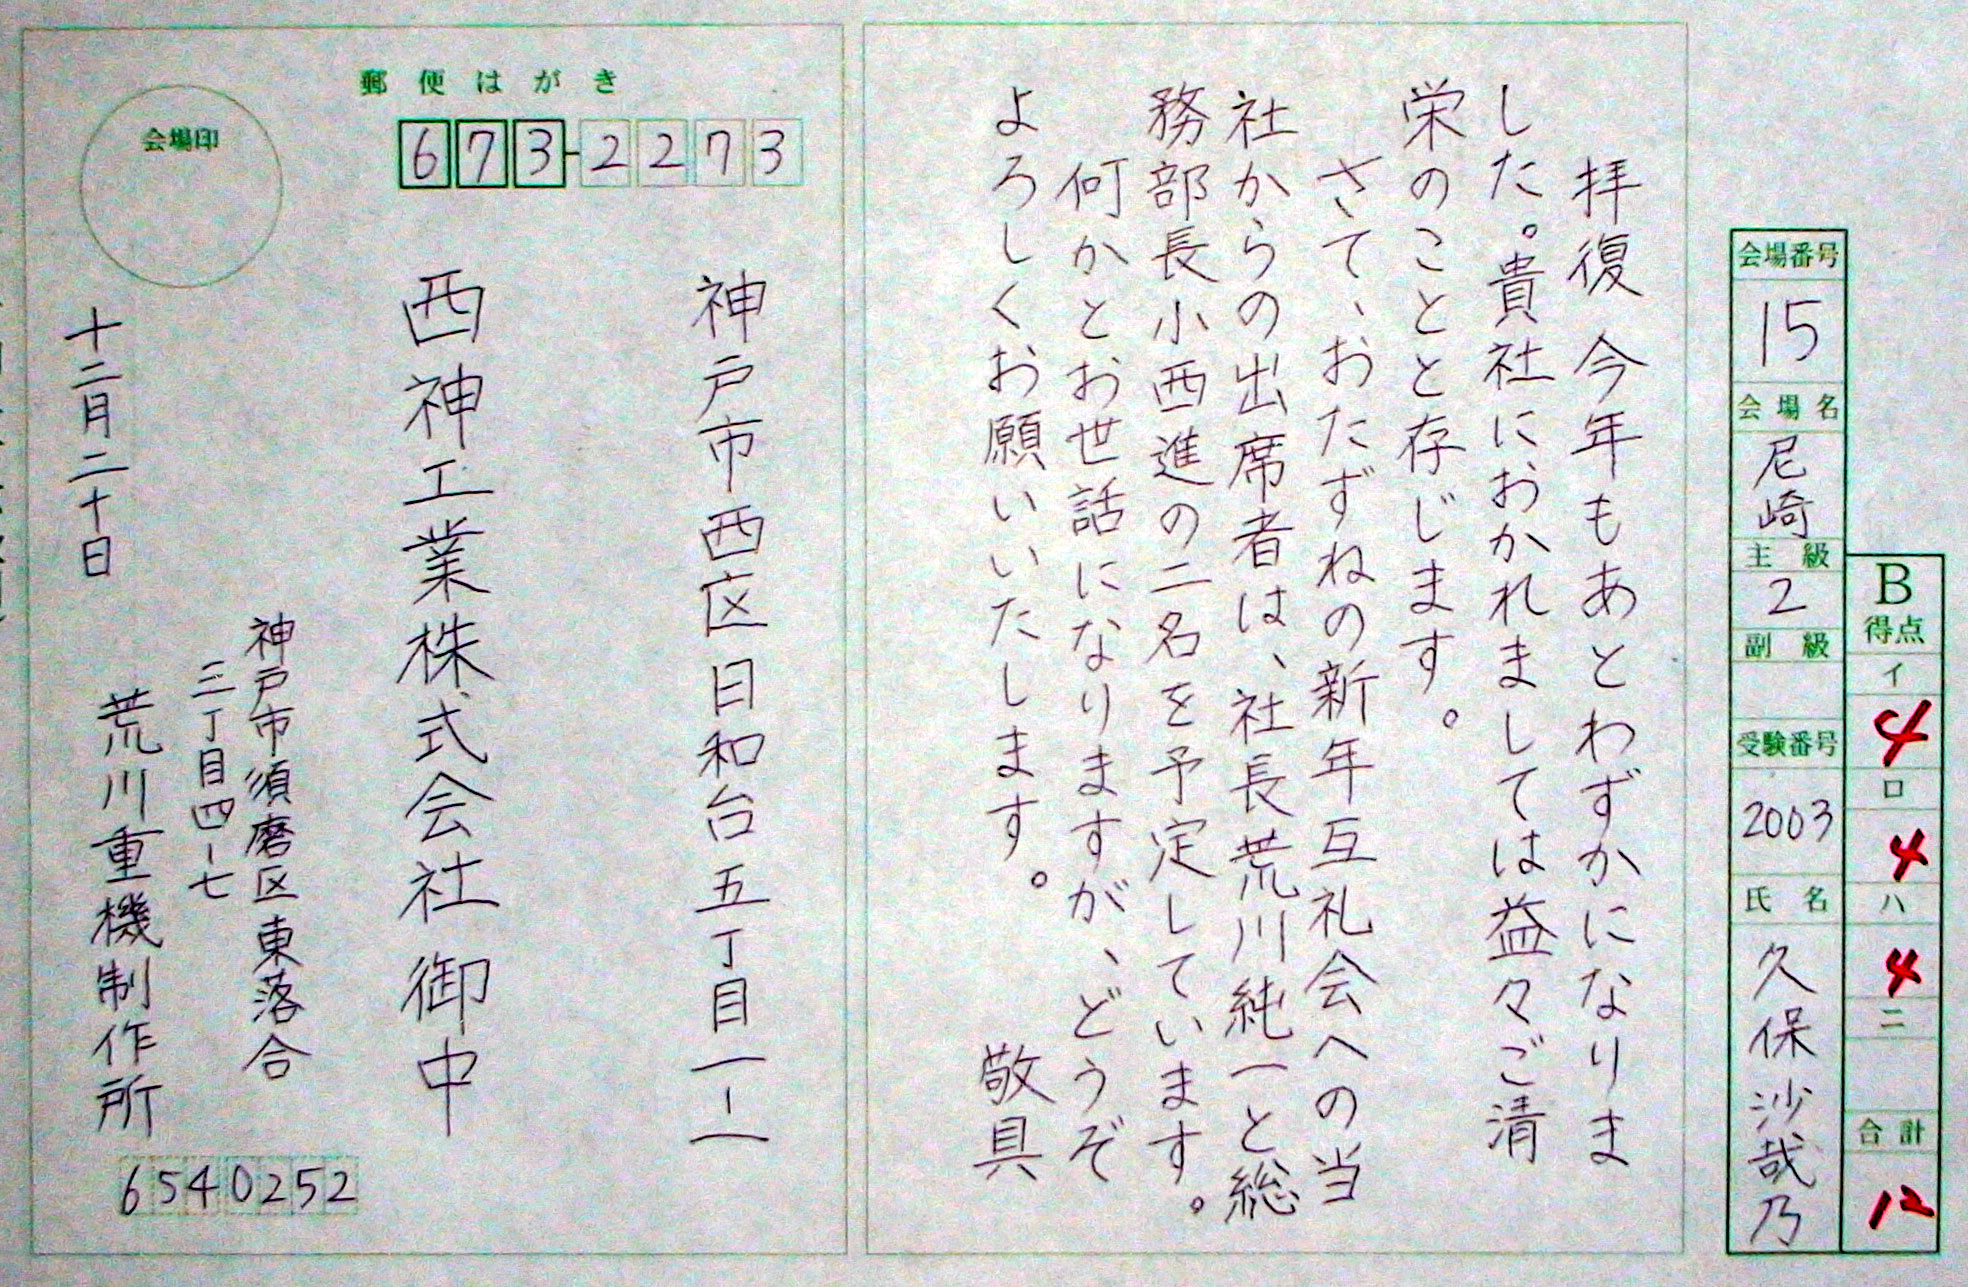 会場番号
15
会場名
尼崎
主級
2
副級
受験番号
2003
氏名
久保沙哉乃
B
得点
イ
4
ロ
4
ハ
4
ニ
合計
12
拝復 今年もあとわずかになりま
した。貴社におかれましては益々ご清
栄のことと存じます。
さて、おたずねの新年互礼会への当
社からの出席者は、社長荒川純一と総
務部長小西進の二名を予定しています。
何かとお世話になりますが、どうぞ
よろしくお願いいたします。
敬具
郵便はがき
673-2273
会場印
神戸市西区日和台五丁目一-一
西神工業株式会社 御中
神戸市須磨区東落合
三丁目四-七
荒川重機制作所
十二月二十日
6540252